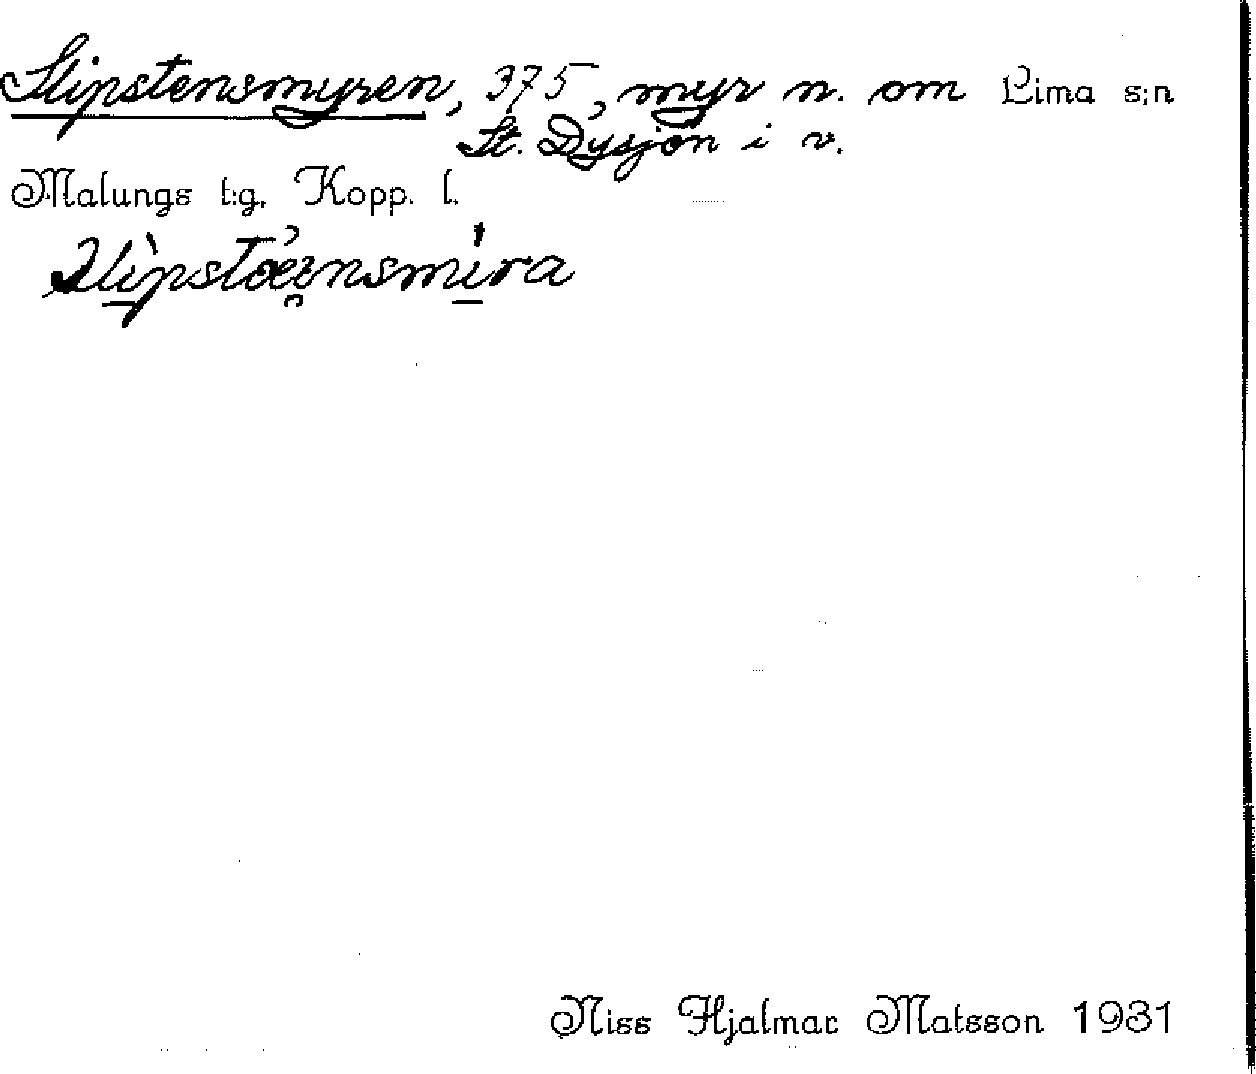 Slipstensmyren, 375, myr n. om Lima s:n
St. Dysjön i v.
Malungs t:g. Kopp. l.
Niss Hjalmar Matsson 1931